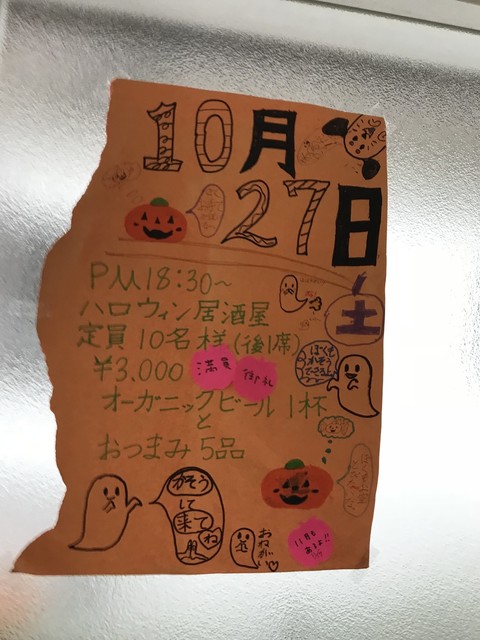 10月
27日
土
PM18:30〜
ハロウィン居酒屋
定員10名様(後1席)
¥3,000
満員
御礼
ぼくも
かそう
オーガニックビール1杯
と
おつまみ5品
かそう
して
来て
ね
おねがい♡
11月も
あるよ!!